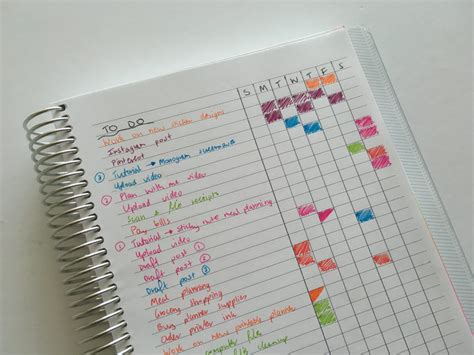 S M T W T F S
TO DO
Work on new sticker designs
Instagram post
Pinterest
③ Tutorial → Monogram
Upload video
② Plan with me video
Upload video
Scan & file receipts
Pay bills
① Tutorial → sticky note meal planning
Upload video
Draft post ①
Draft post ②
Draft post ③
Meal planning
Grocery shopping
Buy planner supplies
Order printer ink
Work on new printable planner
computer file
cleaning